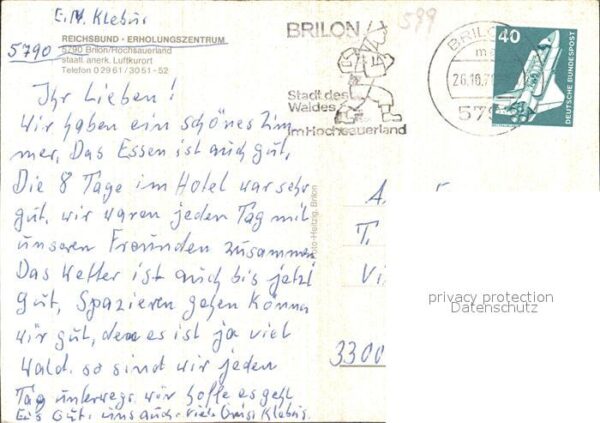 E. M. Klebür
REICHSBUND - ERHOLUNGSZENTRUM
5790
5790 Brilon/Hochsauerland
staatl. anerk. Luftkurort
Telefon 0 29 61 / 30 51 - 52
Ihr Lieben!
Wir haben ein schönes Zim
mer, Das Essen ist auch gut,
Die 8 Tage im Hotel war sehr
gut, wir waren jeden Tag mit
unseren Freunden zusammen
Das Wetter ist auch bis jetzt
gut, Spazieren gehen können
wir gut, denn es ist ja viel
Wald. so sind wir jeden
Tag unterwegs. wir hoffe es geht
Euch gut. uns auch. viele Grüße Klebürs.
BRILON
Stadt des
Waldes
im Hochsauerland
599
BRILON
26.10.7
579
40
DEUTSCHE BUNDESPOST
Foto-Heitzig, Brilon
A.
T.
Vi
3300
privacy protection
Datenschutz